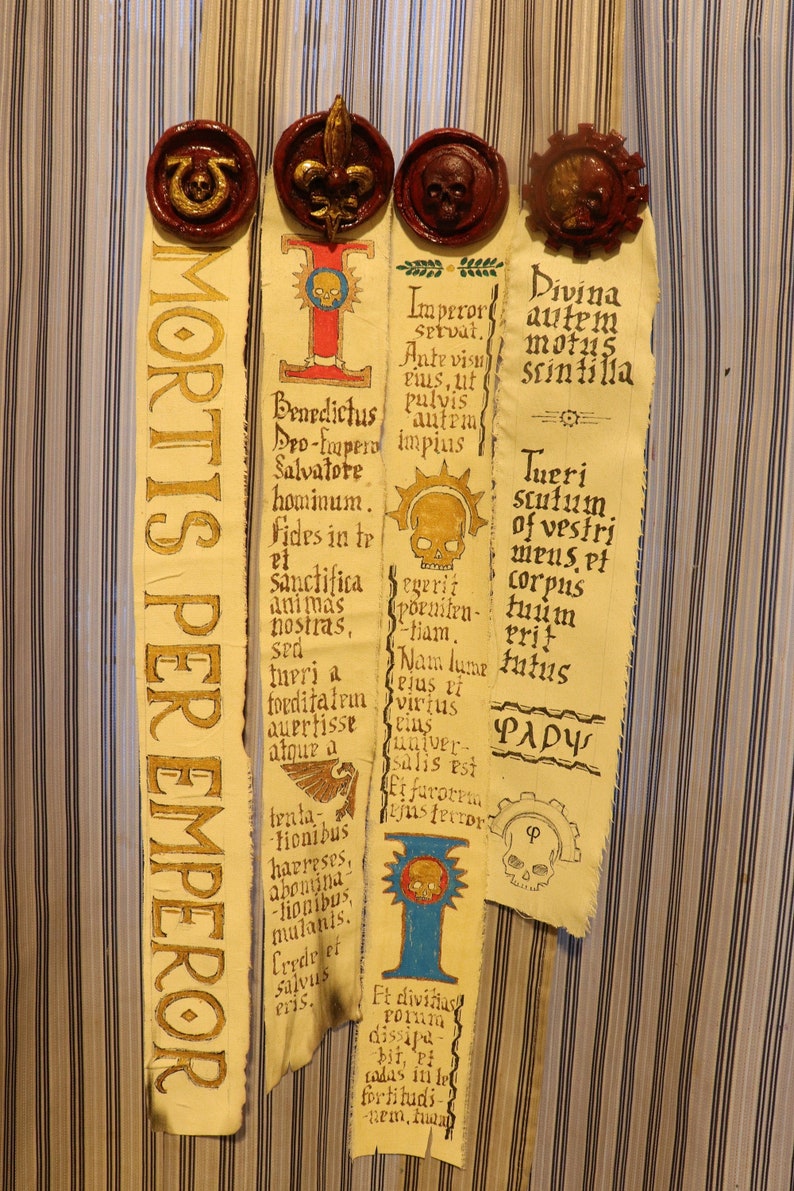 MORTIS PER EMPEROR
Benedictus
Deo-Impero
Salvatore
hominum.
Fides in te
et
sanctifica
animas
nostras,
sed
tueri a
foeditatem
avertisse
atque a
tenta-
-tionibus
haereses,
abomina-
-tionibus,
mutanis.
Crede et
salvus
eris.
Imperor
servat.
Ante visu
eius, ut
pulvis
autem
impius
egerit
poeniten-
-tiam.
Nam lume
ejus et
virtus
eius
univer-
salis est
Et furorem
ejus terror
Et divitias
eorum
dissipa-
-bit, et
cadas in te
fortitudi-
-nem, tuam
Divina
autem
motus
scintilla
Tueri
scutum
of vestri
mens, et
corpus
tuum
erit
tutus
φ